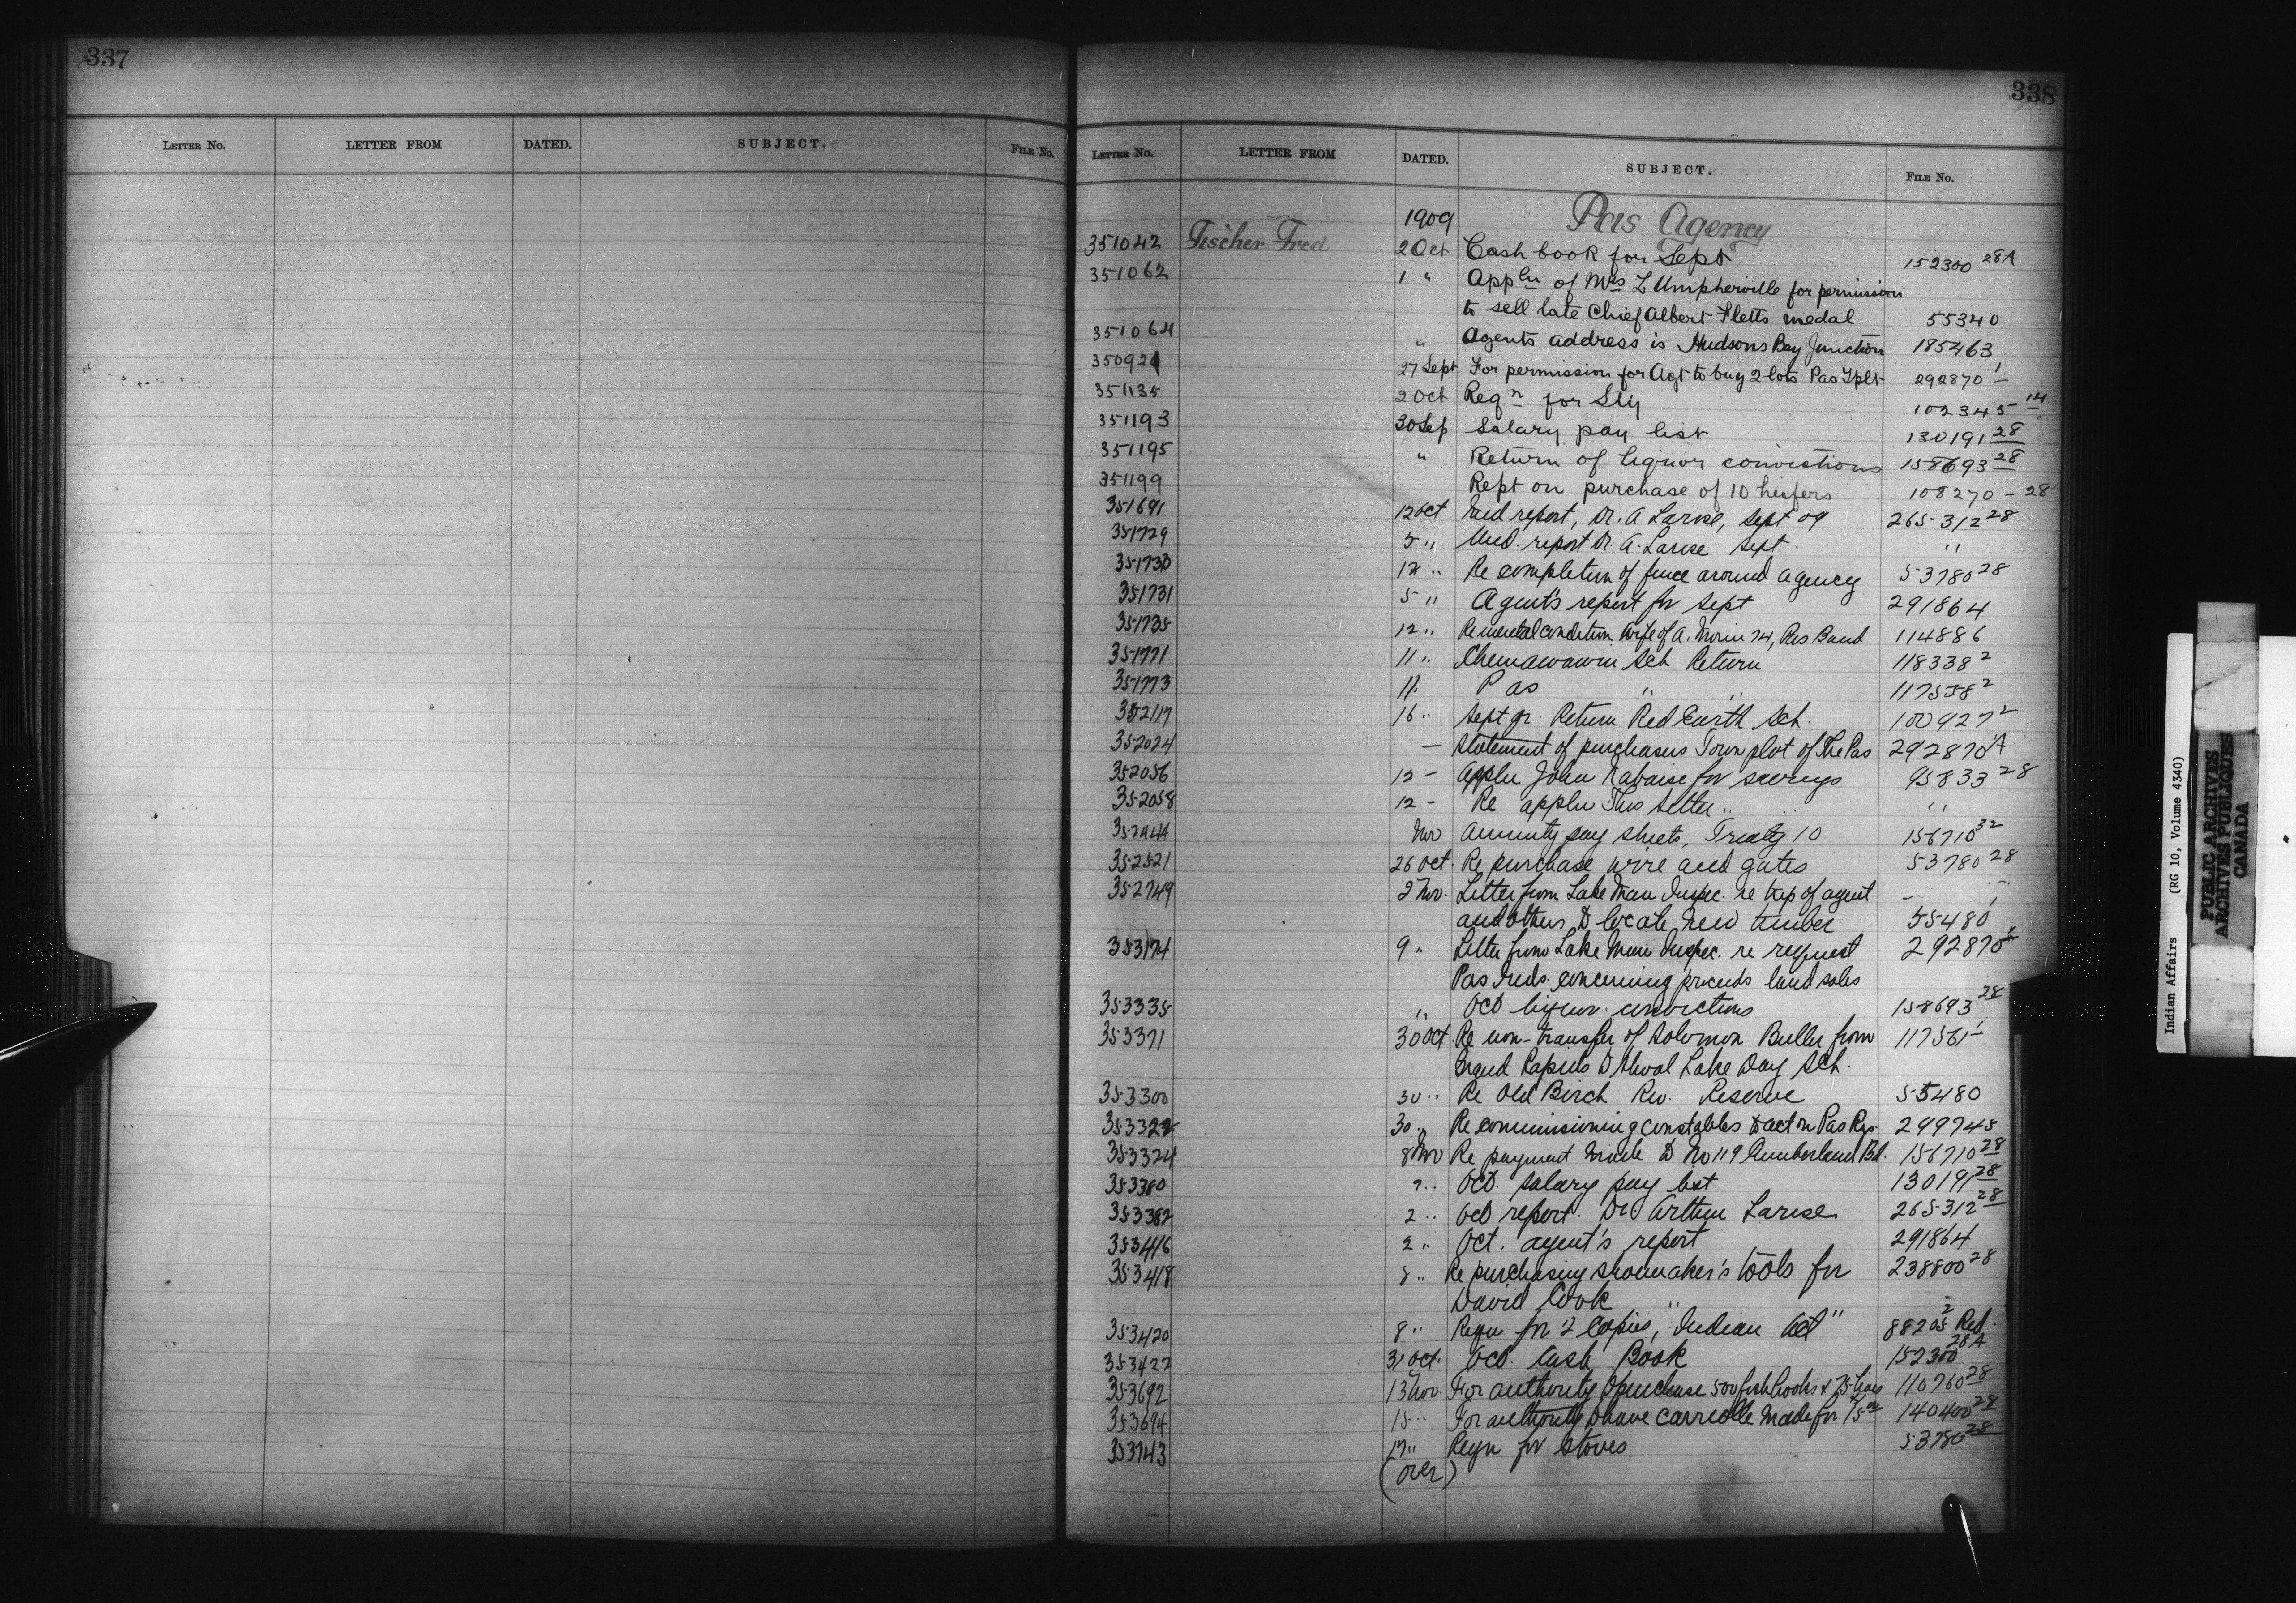 337
LETTER NO. LETTER FROM DATED. SUBJECT. FILE No.
338
LETTER NO. LETTER FROM DATED. SUBJECT. FILE No.
1909 Pas Agency
351042 Fischer Fred 2 Oct Cash book for Sept 152300 28A
351062 1 " Appln of Mrs L Umpherville for permission
to sell late Chief Albert Fletts medal 55340
351064 " Agents address is Hudsons Bay Junction 185463
350921 27 Sept For permission for Agt to buy 2 lots Pas Tplt 292870 1
351135 2 Oct Reqn for Sty 102345 14
351193 30 Sep Salary pay list 130191 28
351195 " Return of liquor convictions 158693 28
351199 Rept on purchase of 10 heifers 108270 - 28
351691 12 Oct Med report, Dr. A Larose, Sept 09 265312 28
351729 5 " Med. report Dr. A. Larose Sept. "
351730 12 " Re completion of fence around Agency 53780 28
351731 5 " Agent's report for Sept 291864
351735 12 " Re mental condition wife of A. Morin 74, Pas Band 114886
351771 11 " Chemawawin Sch Return 118338 2
351773 11. Pas " " 117558 2
352117 16 " Sept qr. Return Red Earth Sch. 100927 2
352024 — Statement of purchasers Town plot of The Pas 292870 1A
352056 12 - Appln John for savings 95833 28
352058 12 - Re appln "
352444 Nov Annuity pay sheets, Treaty 10 156710 32
352521 26 Oct. Re purchase wire and gates 53780 28
352749 2 Nov. Letter from Lake Man Inspec. re trip of agent
and others to locate new timber 55480
353174 9 " Letter from Lake Man Inspec. re request 292870
Pas Inds. concerning proceeds land sales
353335 " Oct liquor convictions 158693 28
353371 30 Oct. Re non-transfer of Solomon Buller from 117561 1
Grand Rapids to Shoal Lake Day Sch.
353300 30 " Re Old Birch Riv. Reserve 55480
353322 30 " Re commissioning constables to act on Pas Res. 299745
353324 8 Nov Re payment made to No 119 Cumberland Bd. 156710 28
353380 2 " Oct. Salary pay list 130191 28
353382 2 " Oct report. Dr Arthur Larose 265312 28
353416 2 " Oct. agent's report 291864
353418 8 " Re purchasing shoemaker's tools for 238800 28
David Cook
353420 8 " Reqn for 2 copies, "Indian Act" 88205 2 Red.
353422 31 Oct. Oct. Cash Book 152300 28A
353692 13 Nov. For authority to purchase 500 fish hooks & 75 lines 110760 28
353694 15 " For authority to have carriole made for 140400 28
353743 17 " Reqn for Stoves 53780 28
(over)
Indian Affairs (RG 10, Volume 4340)
PUBLIC ARCHIVES
ARCHIVES PUBLIQUES
CANADA